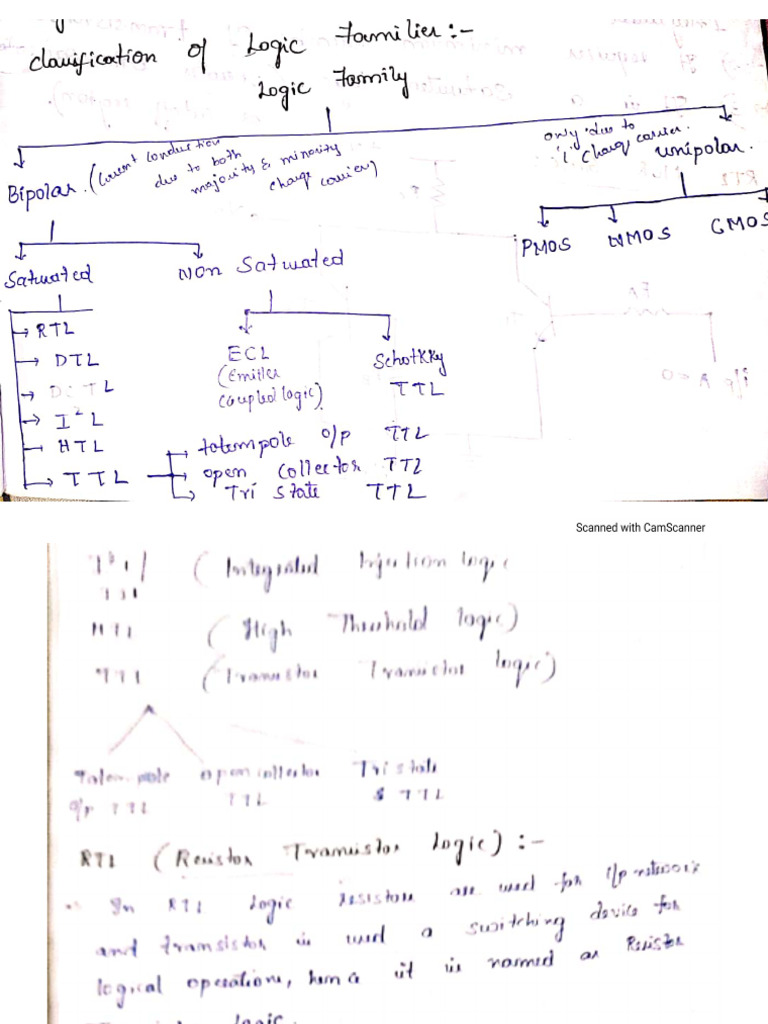 classification of Logic Families:-
Logic Family
Bipolar. (Current conduction
due to both
majority & minority
charge carrier)
only due to
'1' charge carrier.
unipolar.
PMOS NMOS CMOS
Saturated
Non Saturated
→ RTL
→ DTL
→ I²L
→ HTL
→ TTL
ECL
(Emitter
coupled logic)
Schottky
TTL
totempole o/p TTL
open collector TTL
Tri State TTL
Scanned with CamScanner
(Integrated Injection logic
HTL (High Threshold logic)
TTL (Transistor Transistor logic)
Totem pole open collector Tri state
o/p TTL TTL TTL
RTL (Resistor Transistor Logic) :-
In RTL Logic resistors are used for i/p network
and transistor is used a switching device for
logical operations, hence it is named as Resistor
logic.